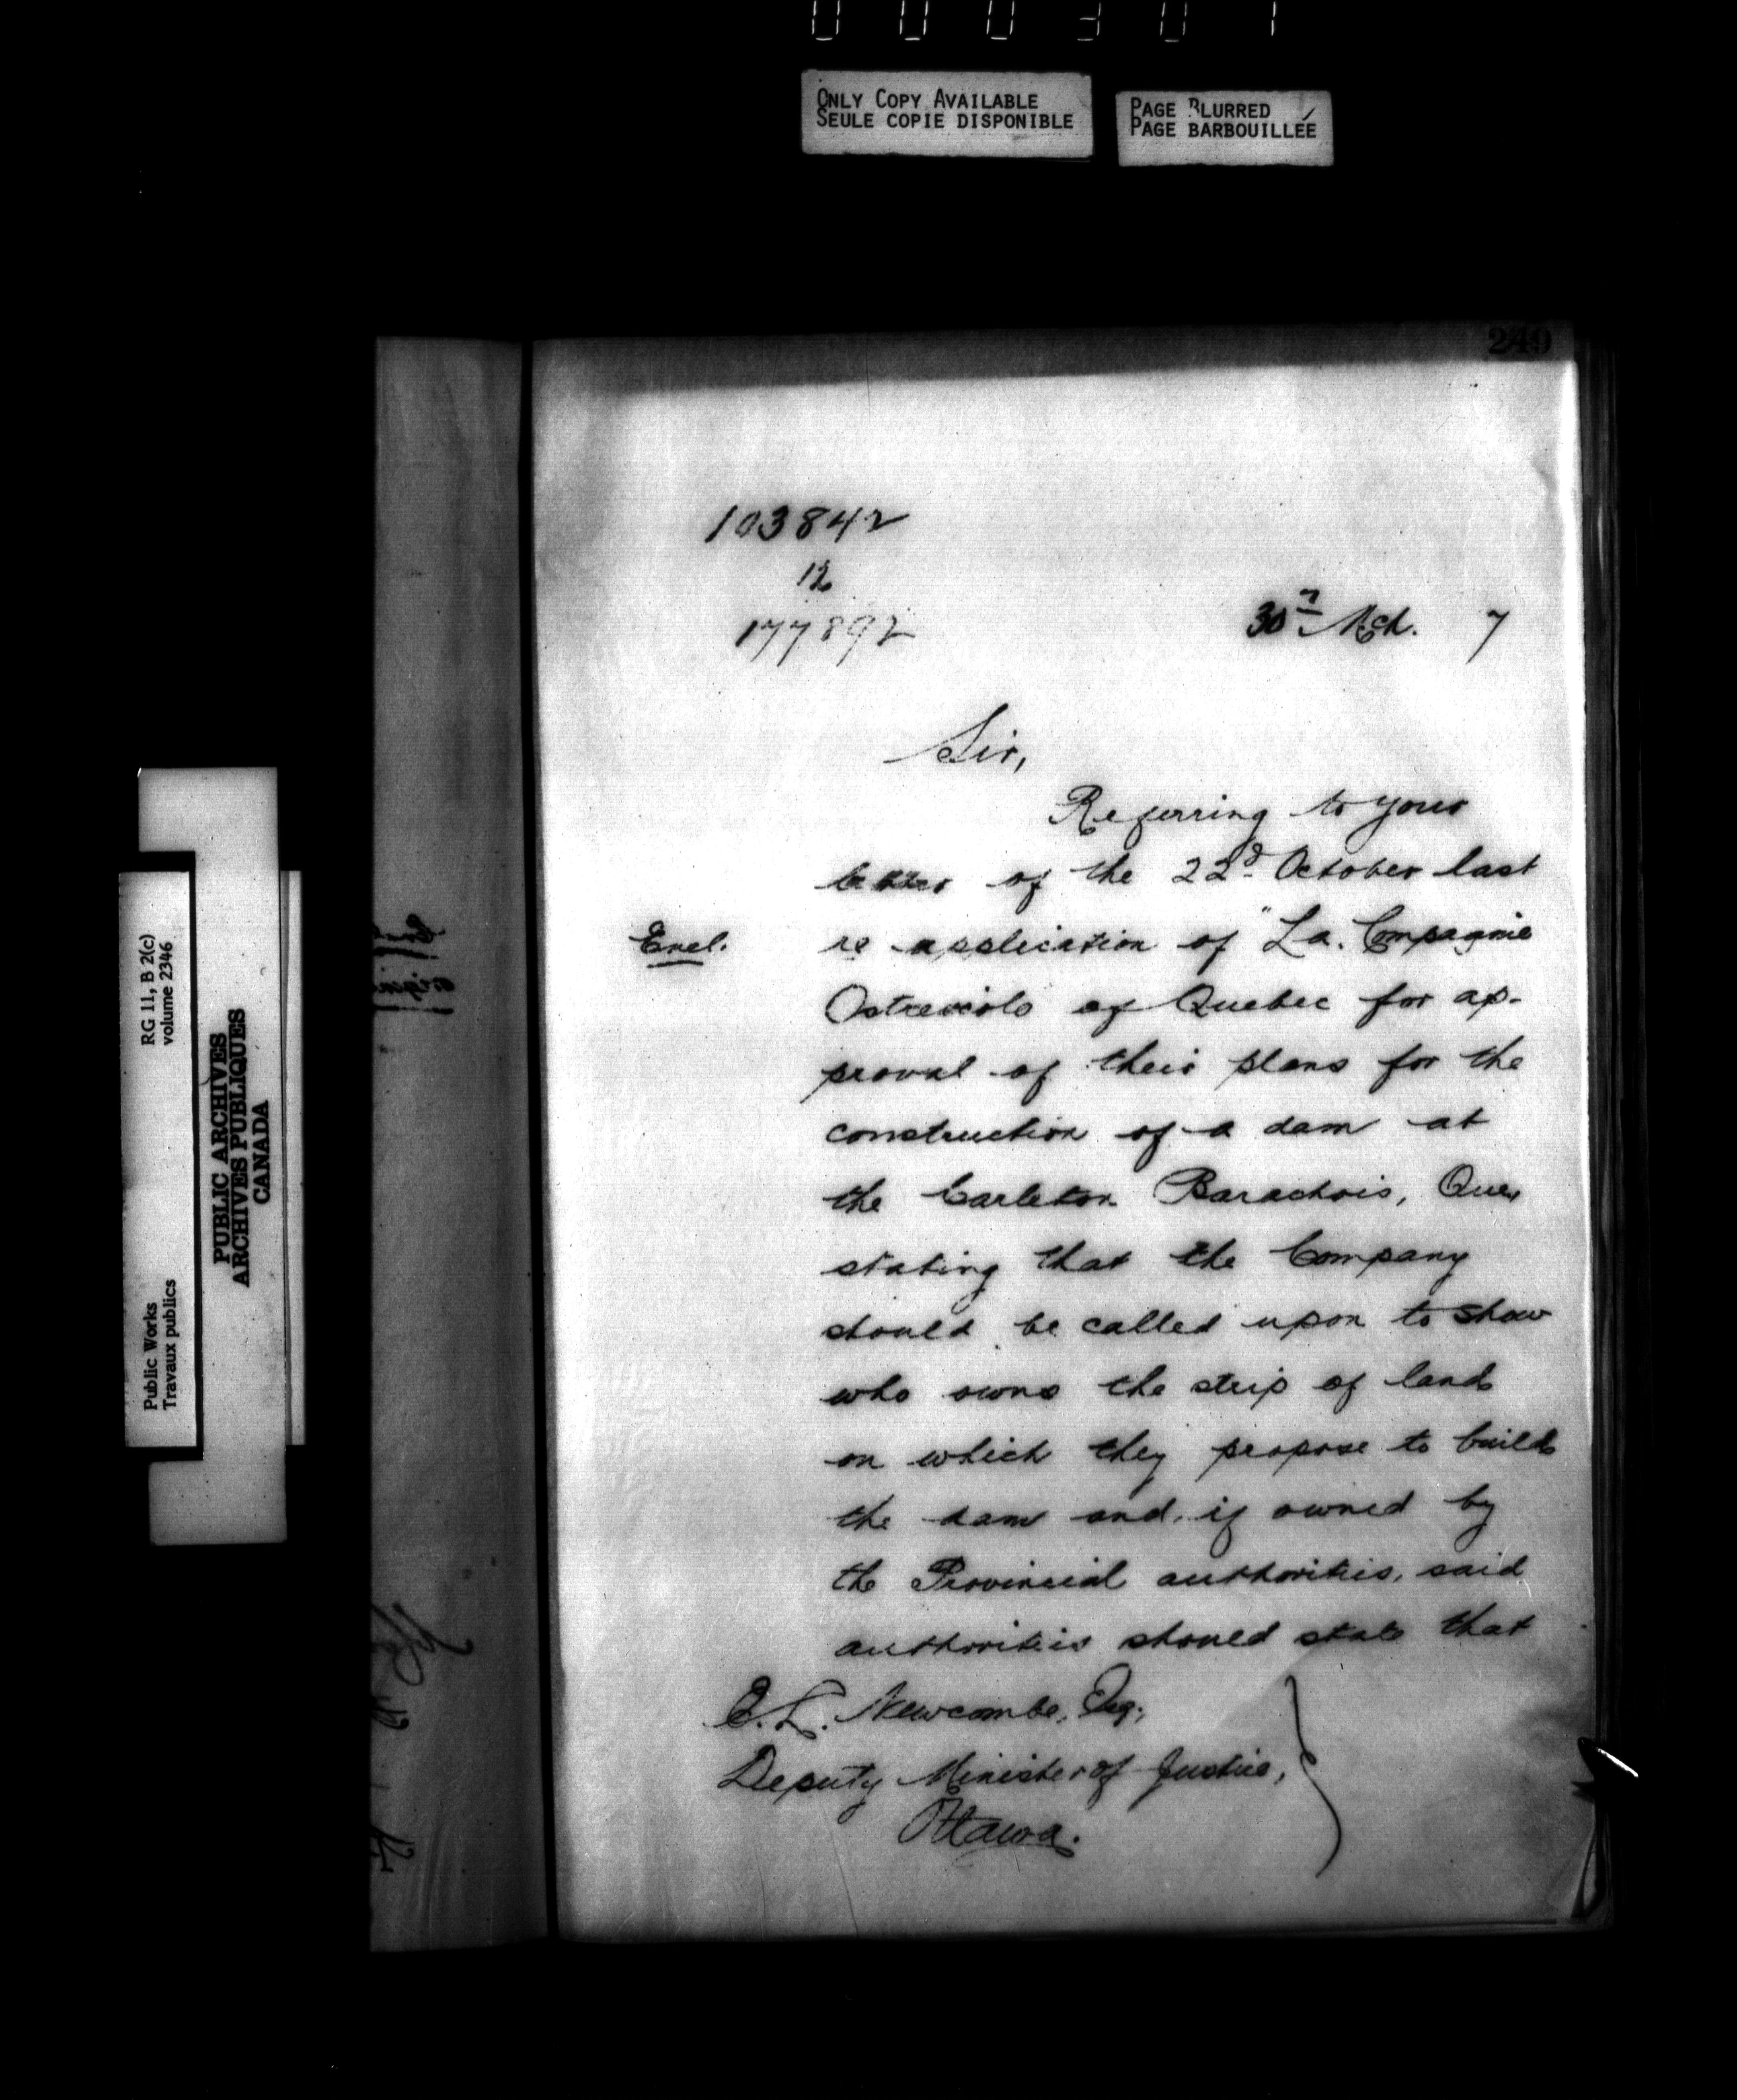 ONLY COPY AVAILABLE
SEULE COPIE DISPONIBLE
PAGE BLURRED
PAGE BARBOUILLÉE
249
103842
12
177892
30th Mch. 7
Sir,
Referring to your
letter of the 22d October last
Encl. re application of "La. Compagnie
Ostreicole of Quebec for ap-
proval of their plans for the
construction of a dam at
the Carleton Barachois, Que,
stating that the Company
should be called upon to show
who owns the strip of land
on which they propose to build
the dam and, if owned by
the Provincial authorities, said
authorities should state that
E. L. Newcombe, Esq.,
Deputy Minister of Justice,
Ottawa.
Public Works
Travaux publics
RG 11, B 2(c)
volume 2346
PUBLIC ARCHIVES
ARCHIVES PUBLIQUES
CANADA